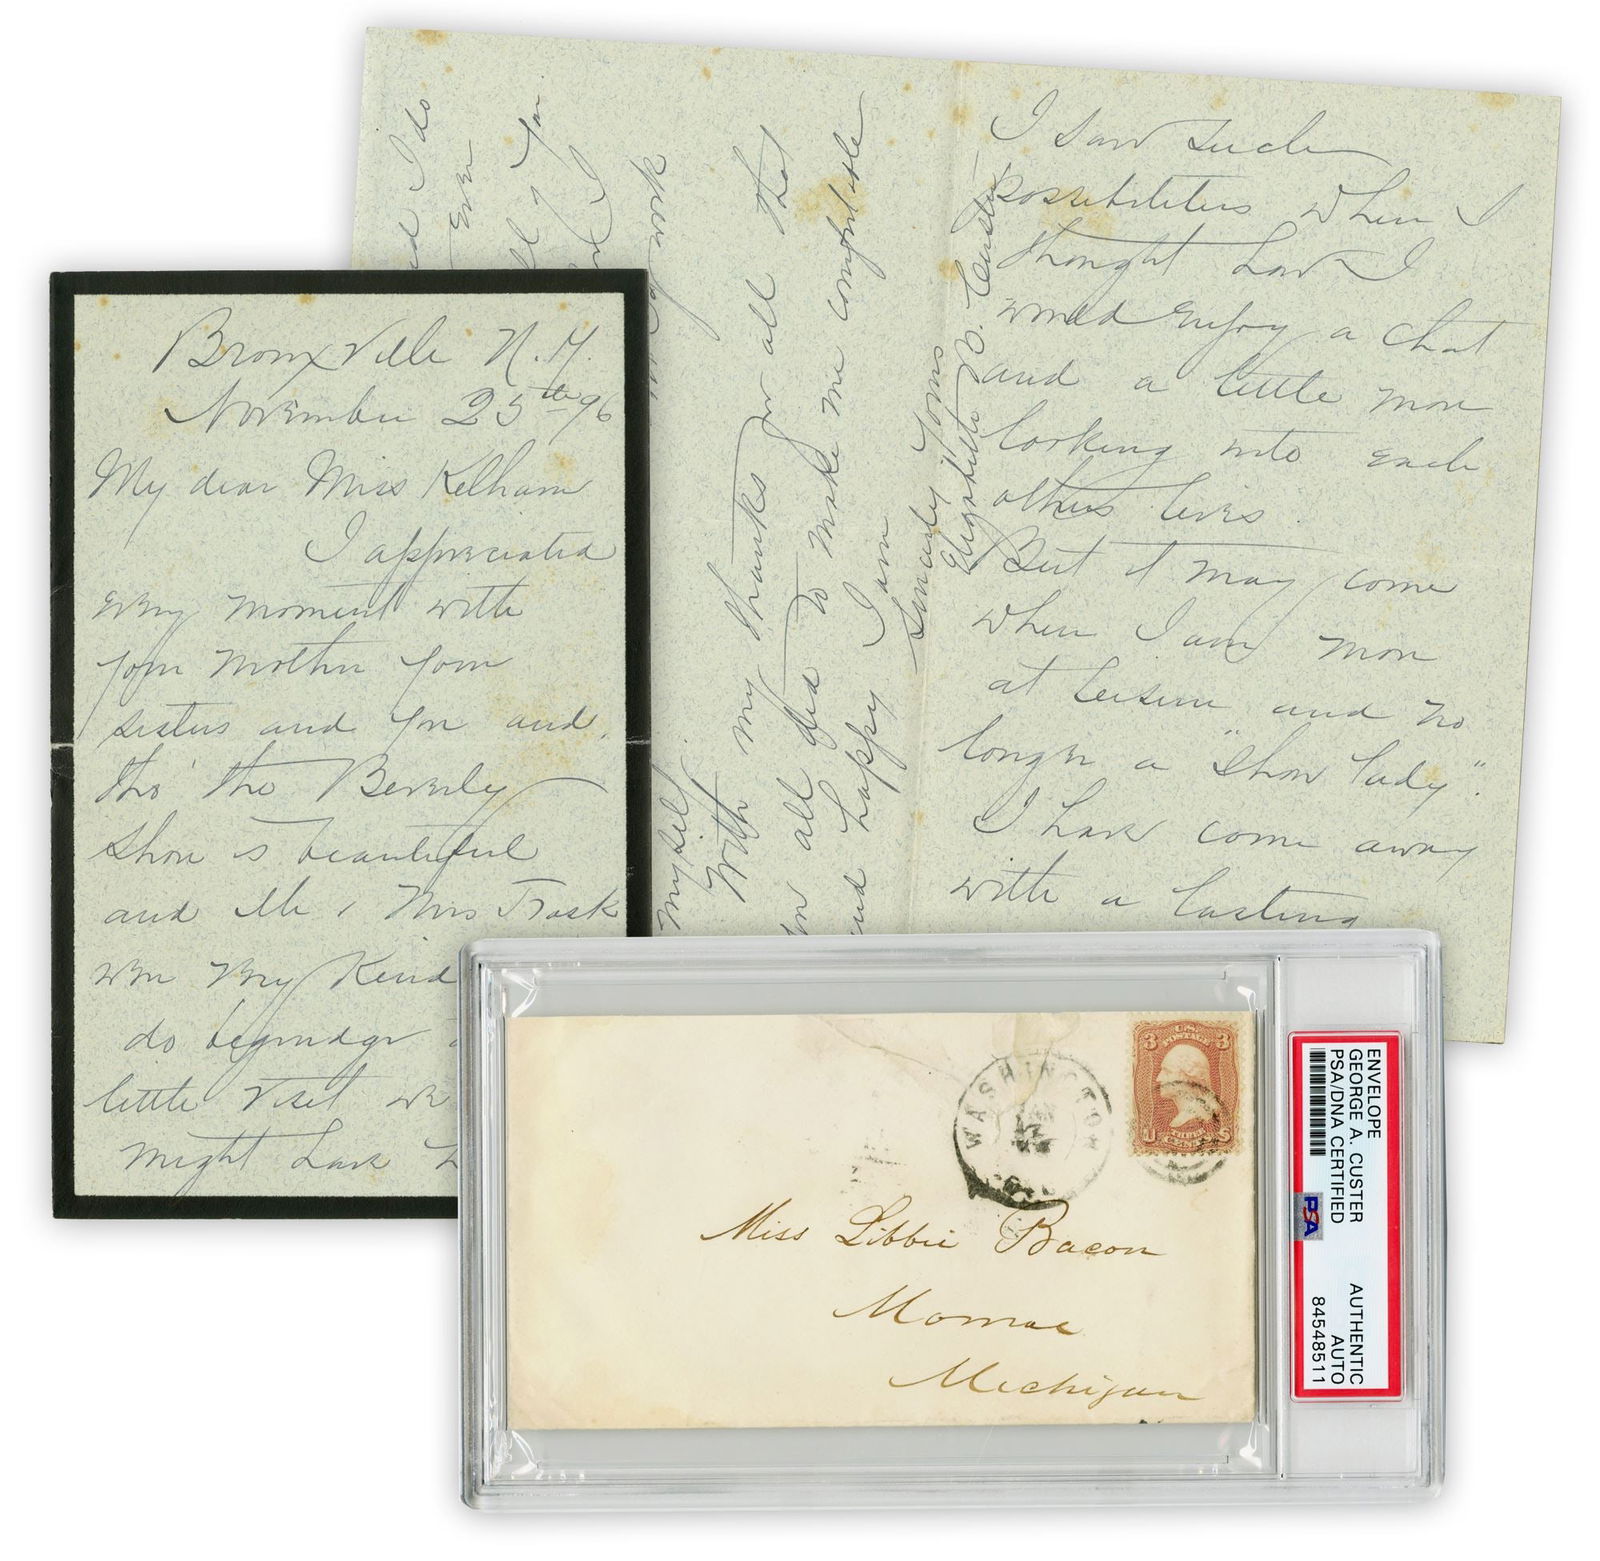 Bronxville N.Y.
November 25th 96
My dear Miss Kelham
I appreciated
every moment with
your mother your
sisters and you and
tho' the Beverly
Shore is beautiful
and Mr & Mrs Trask
were very kind
do begrudge
little visit we
might have
I saw such
possibilities when I
thought how I
would enjoy a chat
and a little more
looking into each
others lives.
But it may come
when I am more
at leisure and no
longer a "show lady".
I have come away
with a lasting
I do
Even
all of you
myself.
With my thanks for all that
you all did to make me comfortable
and happy I am
Sincerely Yours
Elizabeth B. Custer
WASHINGTON
U.S. POSTAGE
3 3
U S
THREE CENTS
Miss Libbie Bacon
Monroe
Michigan
ENVELOPE
GEORGE A. CUSTER
PSA/DNA CERTIFIED
PSA
AUTHENTIC
AUTO
84548511